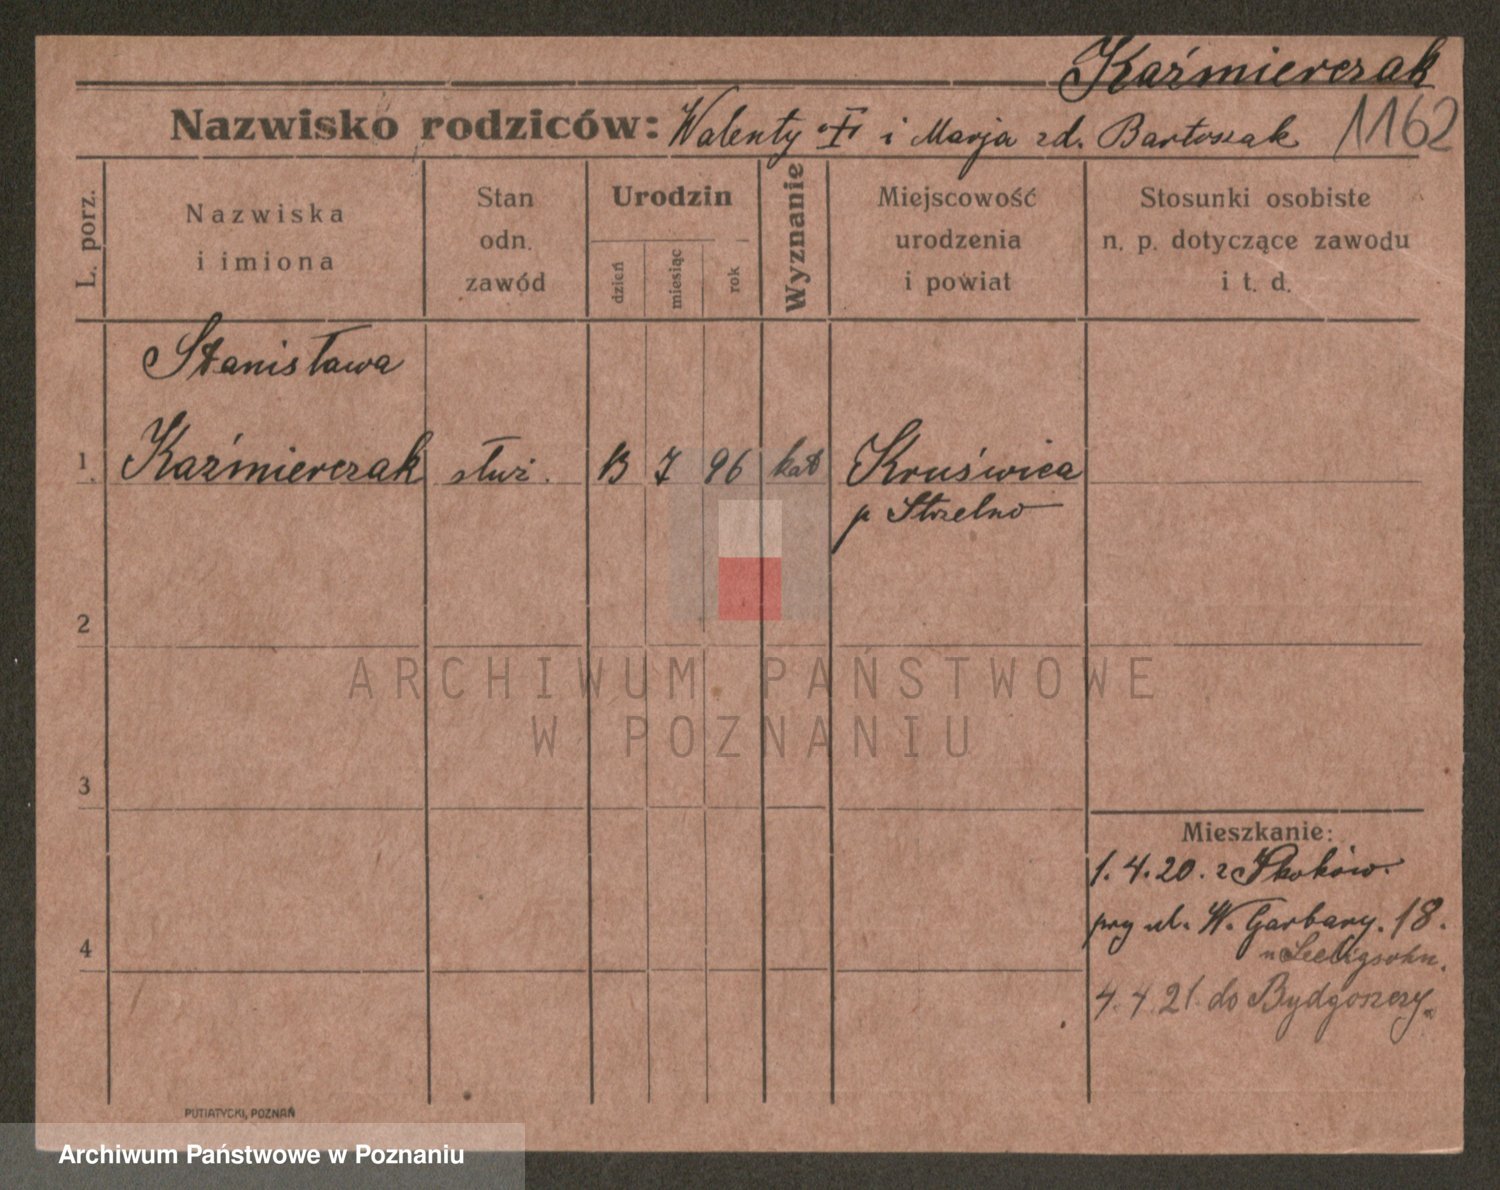 Kaźmierczak
1162
Nazwisko rodziców: Walenty † i Marja zd. Bartoszak
L. porz.
Nazwiska
i imiona
Stan
odn.
zawód
Urodzin
dzień
miesiąc
rok
Wyznanie
Miejscowość
urodzenia
i powiat
Stosunki osobiste
n. p. dotyczące zawodu
i t. d.
Stanisława
1. Kaźmierczak służ. 13 7 96 kat Kruświca
p Strzelno
2
3
4
Mieszkanie:
1.4.20. z Skoków.
przy ul. W. Garbary. 18.
u Seeligsohn.
4.4.21. do Bydgoszczy.
PUTIATYCKI, POZNAŃ
ARCHIWUM PAŃSTWOWE
W POZNANIU
Archiwum Państwowe w Poznaniu